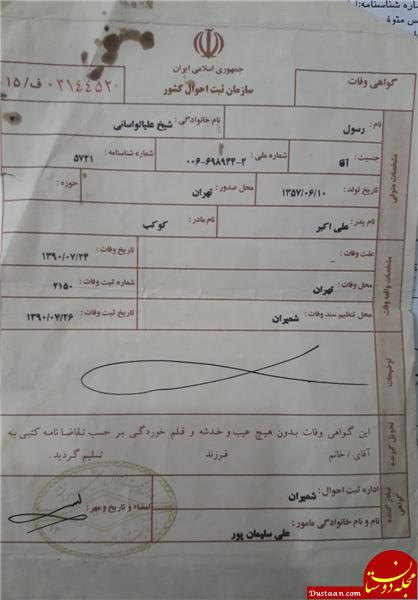 جمهوری اسلامی ایران
سازمان ثبت احوال کشور
گواهی وفات
۰۲۱۴۴۵۲۰ ف/۱۵
مشخصات متوفی
نام : رسول
نام خانوادگی : شیخ علیالواسانی
جنسیت : آقا
شماره ملی : ۰۰۶-۶۹۸۹۴۴-۲
شماره شناسنامه : ۵۷۲۱
تاریخ تولد : ۱۳۵۷/۰۶/۱۰
محل صدور : تهران
حوزه :
نام پدر : علی اکبر
نام مادر : کوکب
مشخصات واقعه وفات
علت وفات : -
تاریخ وفات : ۱۳۹۰/۰۷/۲۴
محل وفات : تهران
شماره ثبت وفات : ۲۱۵۰
محل تنظیم سند وفات : شمیران
تاریخ ثبت وفات : ۱۳۹۰/۰۷/۲۶
توضیحات
تحویل گیرنده
این گواهی وفات بدون هیچ عیب و خدشه و قلم خوردگی بر حسب تقاضا نامه کتبی به
آقای / خانم فرزند تسلیم گردید.
صادر کننده گواهی
اداره ثبت احوال : شمیران
امضاء و تاریخ و مهر :
نام و نام خانوادگی مامور : علی سلیمان پور
مجله دوستان
Dustaan.com